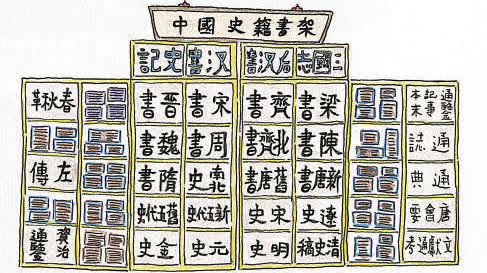 中國史籍書架
史記 汉書 后汉書 三國志
春秋 晉書 宋書 齊書 梁書 通鑒記事本末
魏書 周書 北齊書 陳書 通誌
左傳 隋書 南北史 舊唐書 新唐書 通典
舊五代史 新五代史 宋史 遼史 唐會要
資治通鑒 金史 元史 明史 清史稿 文獻通考